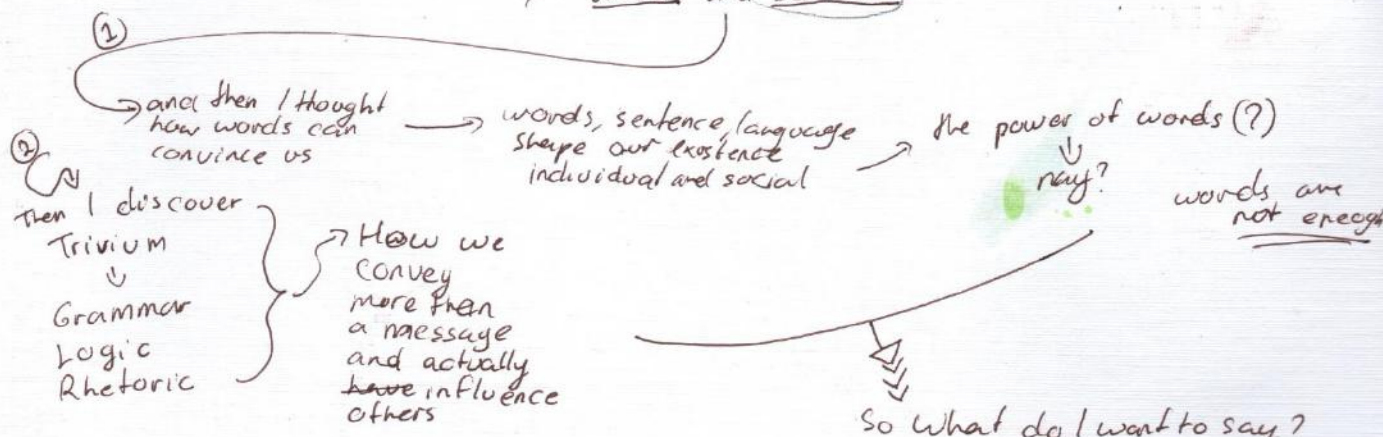 ①
and then I thought
how words can
convince us
words, sentence, language
shape our existence
individual and social
the power of words (?)
nay?
words are
not enough
②
Then I discover
Trivium
Grammar
Logic
Rhetoric
How we
convey
more than
a message
and actually
have influence
others
So what do I want to say?